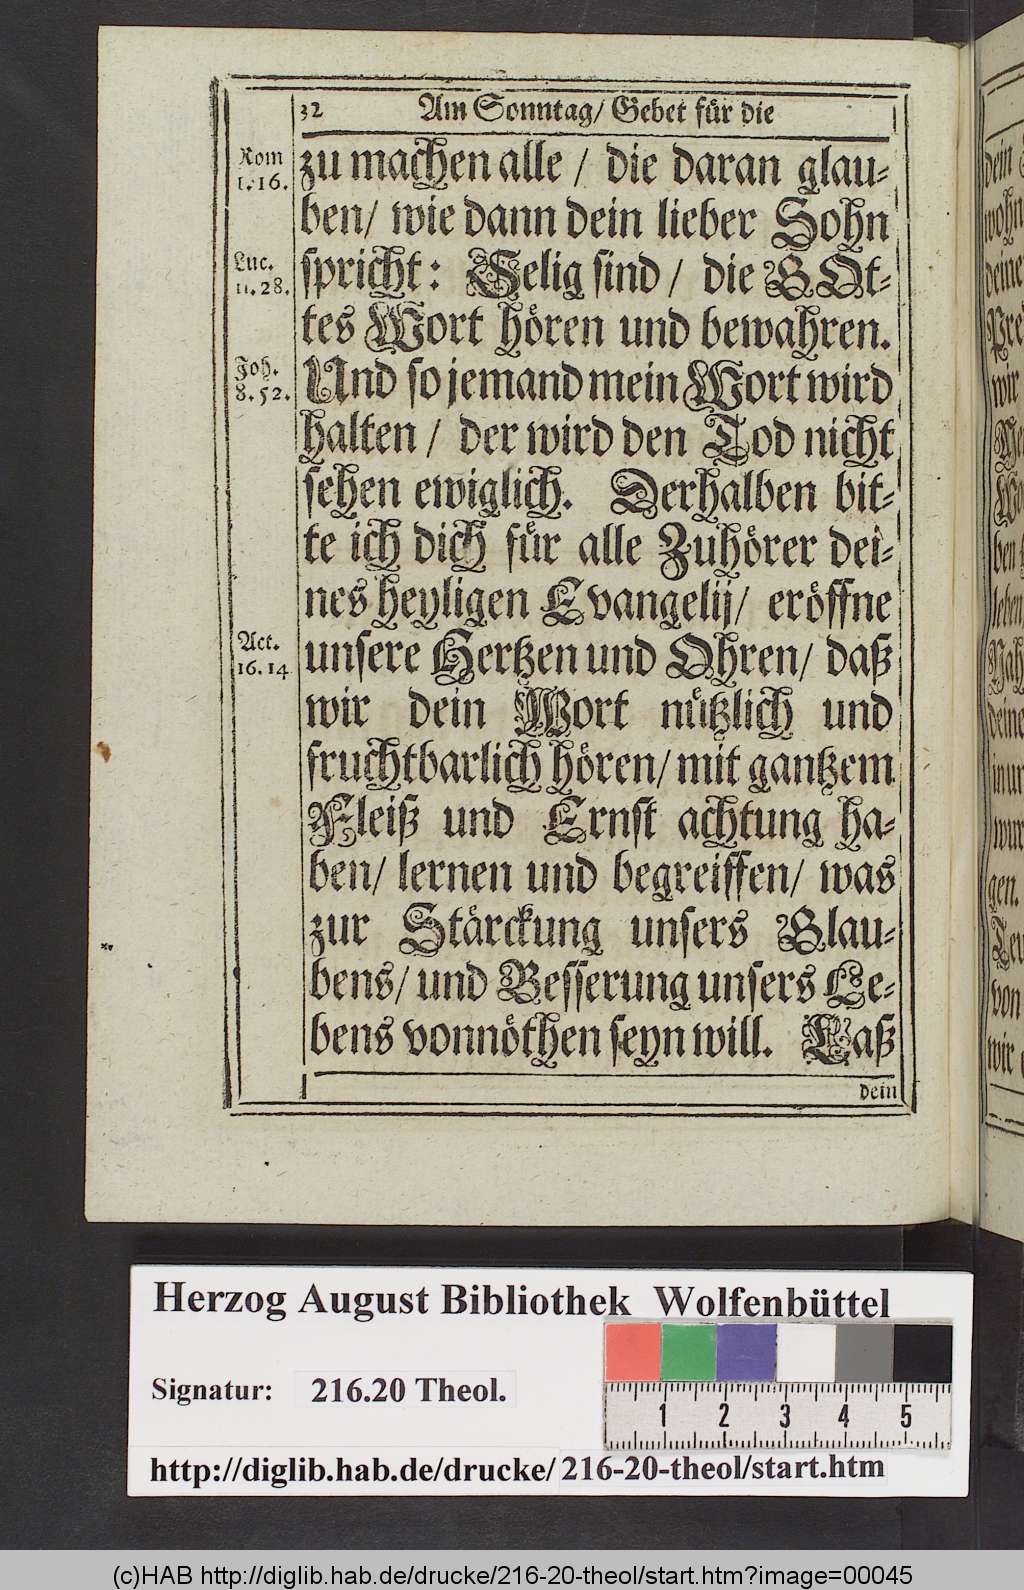 32 Am Sonntag/ Gebet für die
Rom
1. 16.
zu machen alle / die daran glau-
ben/ wie dann dein lieber Sohn
Luc.
11. 28.
spricht: Selig sind / die GOt-
tes Wort hören und bewahren.
Joh.
8. 52.
Und so jemand mein Wort wird
halten / der wird den Tod nicht
sehen ewiglich. Derhalben bit-
te ich dich für alle Zuhörer dei-
nes heyligen Evangelij/ eröffne
Act.
16. 14
unsere Hertzen und Ohren/ daß
wir dein Wort nützlich und
fruchtbarlich hören/ mit gantzem
Fleiß und Ernst achtung ha-
ben/ lernen und begreiffen/ was
zur Stärckung unsers Glau-
bens/ und Besserung unsers Le-
bens vonnöthen seyn will. Laß
dein
Herzog August Bibliothek Wolfenbüttel
Signatur: 216.20 Theol.
1 2 3 4 5
http://diglib.hab.de/drucke/216-20-theol/start.htm
(c)HAB http://diglib.hab.de/drucke/216-20-theol/start.htm?image=00045